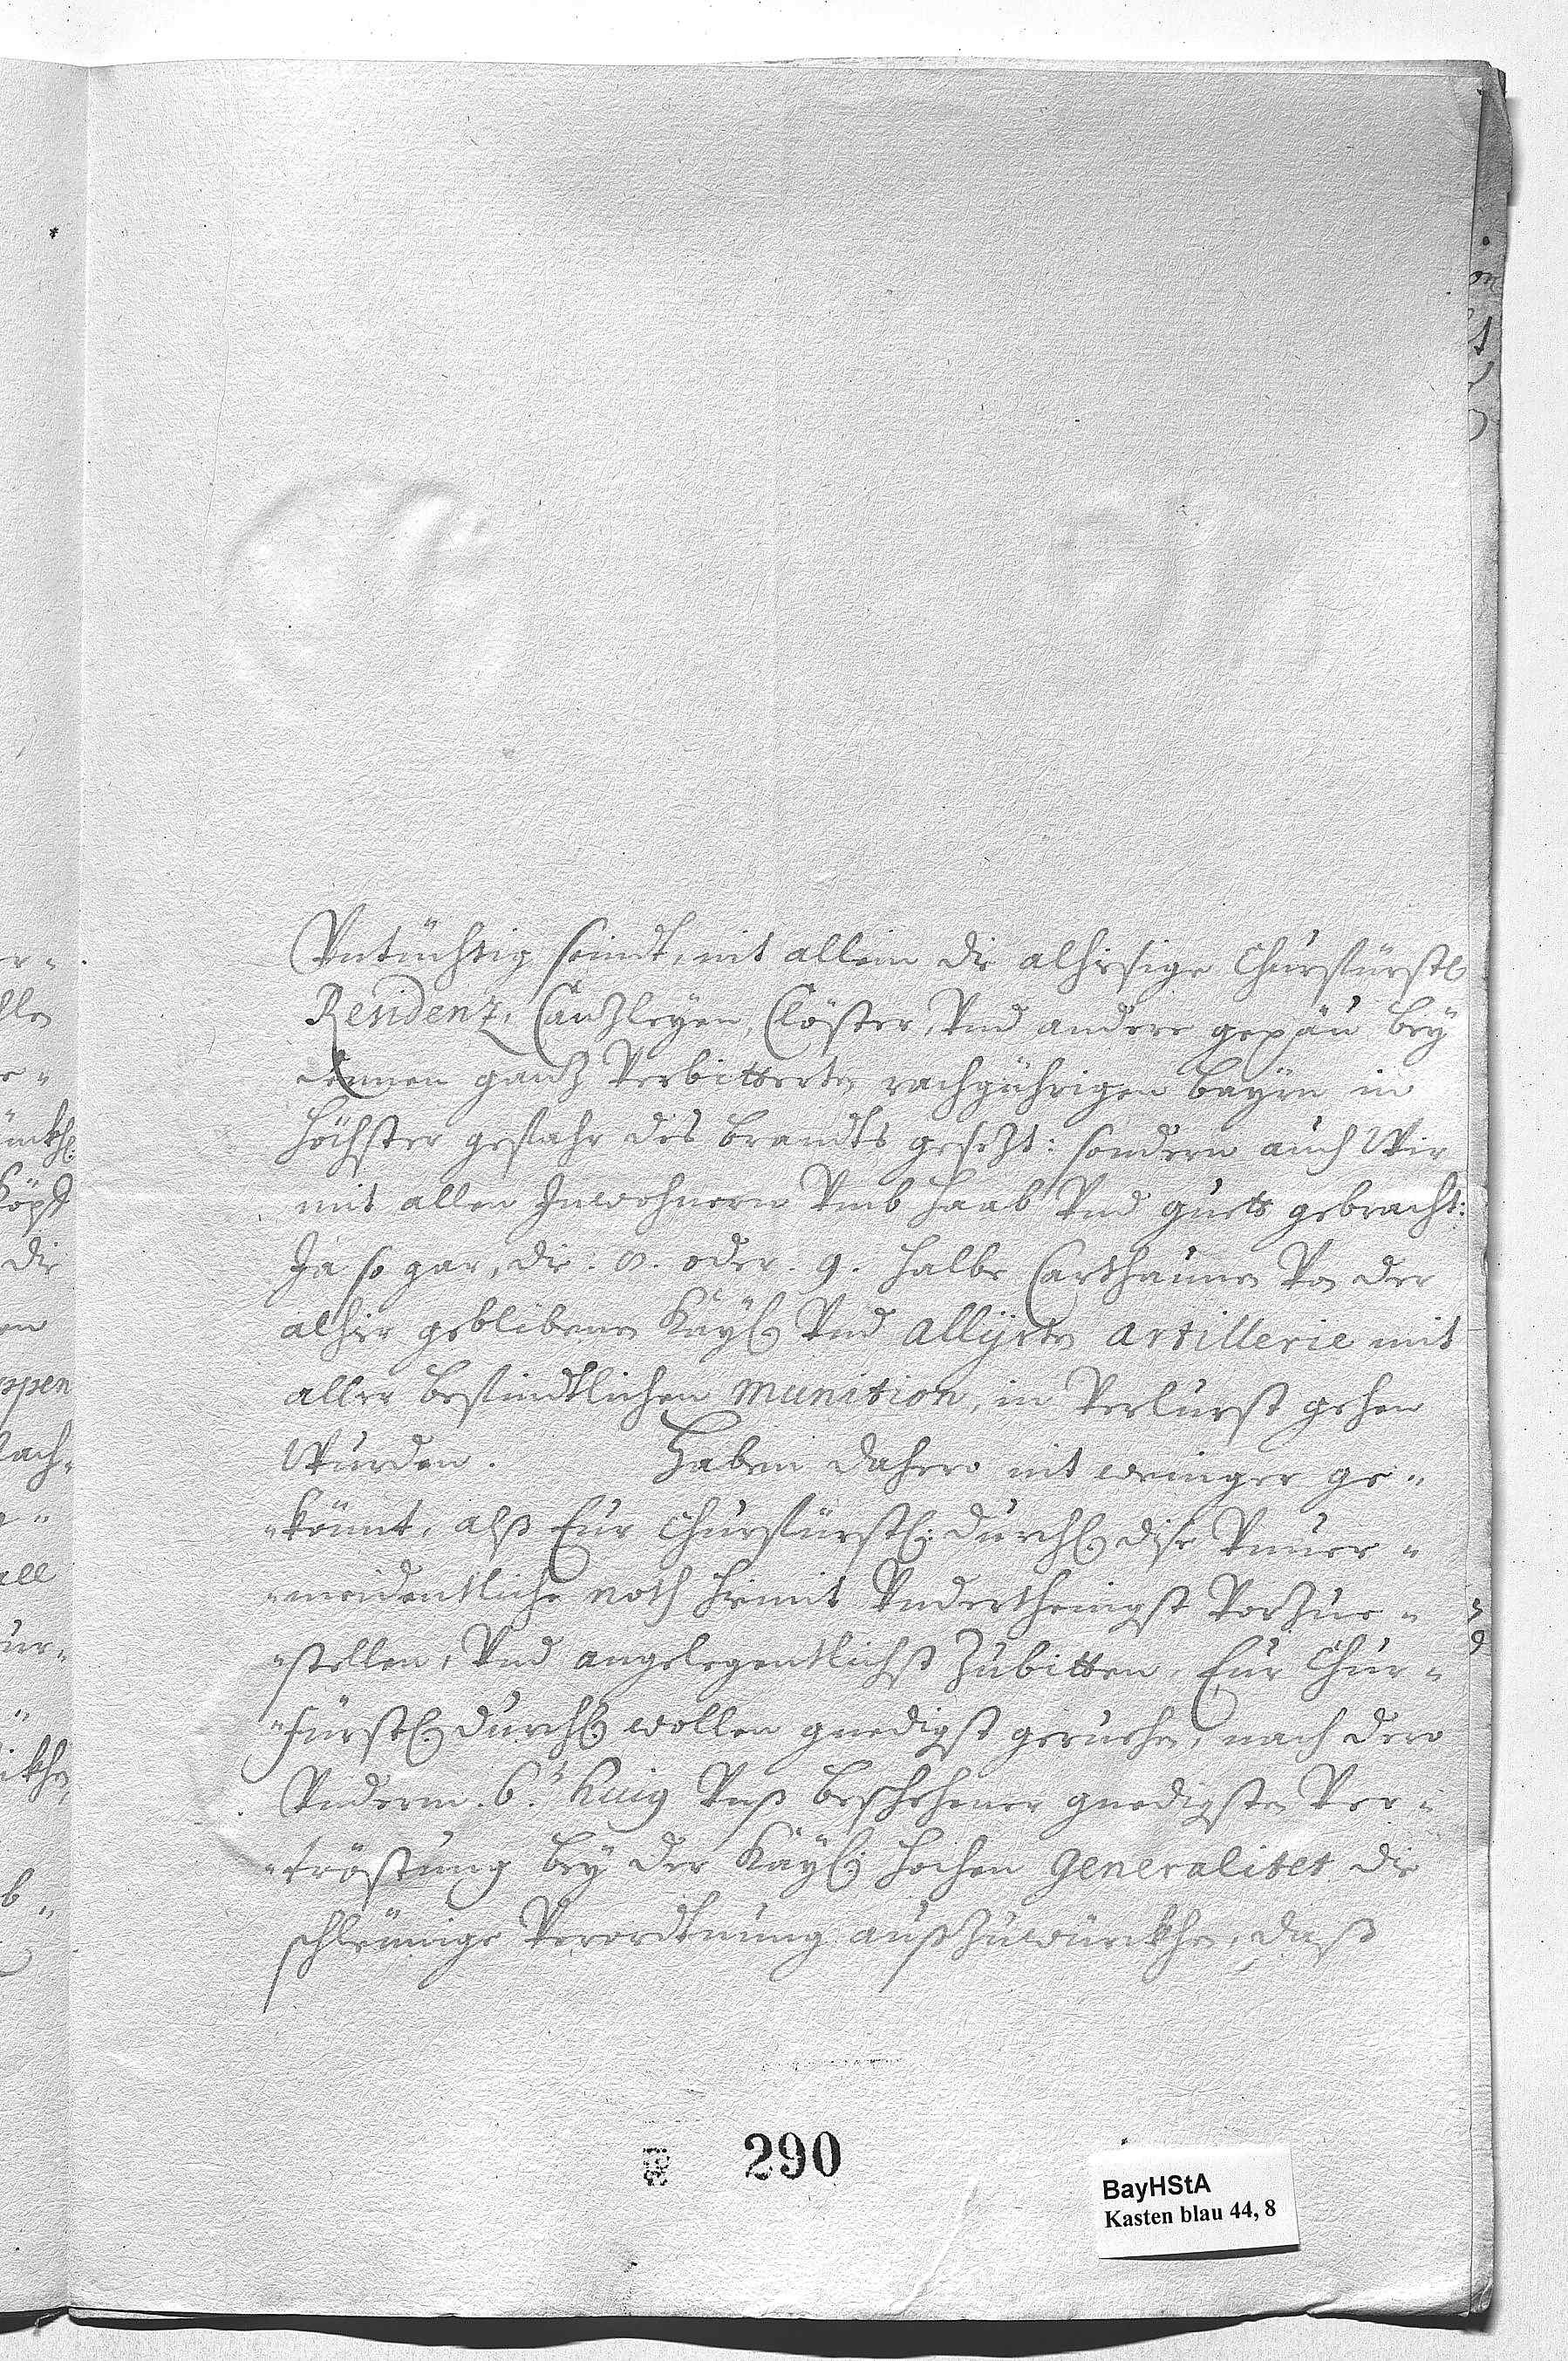 Vntüchtig seindt, nit allein die alhiesige Churfürstl:
Residenz, Canzleyen, Clöster, Vnd andere gepäu bey
dennen ganz Verbitterten rachgührigen bayrn in
höchster gefahr des brandts gesezt: sondern auch Wir
mit allen Inwohnern Vmb haab Vnd guett gebracht:
Ja so gar, die .8. oder .9. halbe Carthaunen Von der
alhier geblibenen Käyl: Vnd allijrten artillerie mit
aller befindtlichen munition, in Verlurst gehen
Wurden. Haben dahero nit weniger ge-
-könnt, alß Eur Churfürstl: durchl: dise Vnuer-
-meidentliche noth hiemit Vnderthenigst Vorzue-
-stellen, Vnd angelegentlichst Zubitten, Eur Chur-
-fürstl: durchl: wollen gnedigst geruehen, nach dero
Vnderm .6.t huius Vnß beschehener gnedigsten Ver-
-tröstung bey der Käyl: hochen Generalitet die
schleunige Verordtnung außzuwürckhen, daß
290
BayHStA
Kasten blau 44, 8